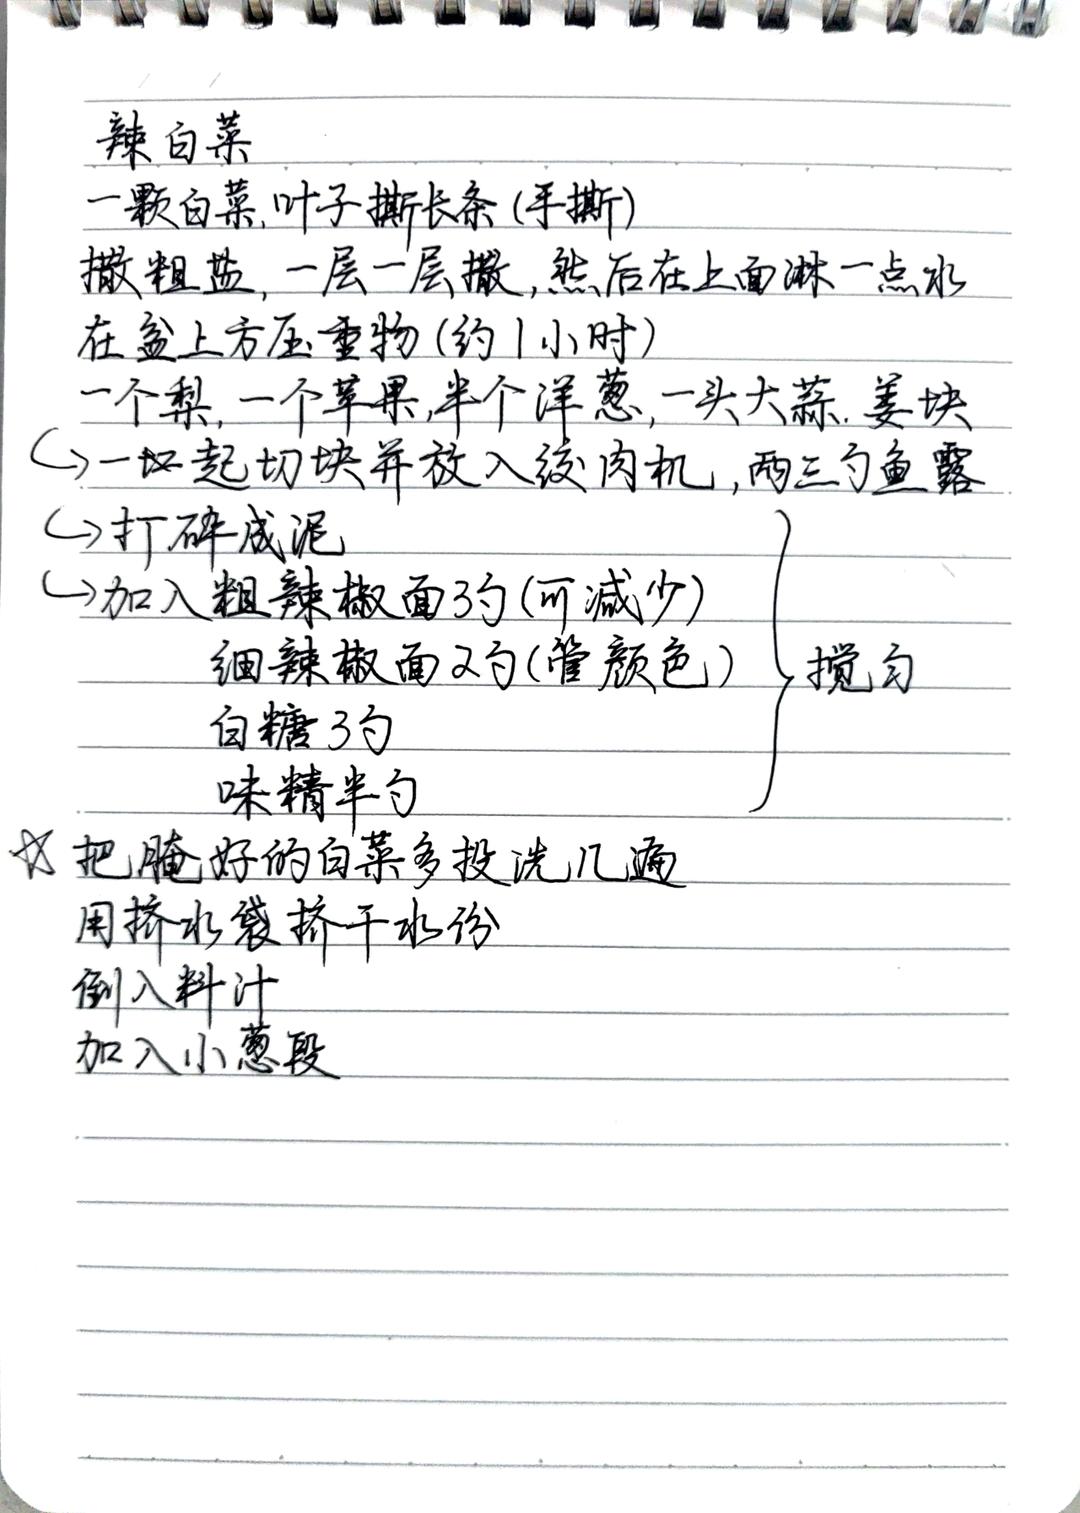 辣白菜
一颗白菜,叶子撕长条(手撕)
撒粗盐,一层一层撒,然后在上面淋一点水
在盆上方压重物(约1小时)
一个梨,一个苹果,半个洋葱,一头大蒜.姜块
一起切块并放入绞肉机,两三勺鱼露
打碎成泥
加入粗辣椒面3勺(可减少)
细辣椒面2勺(管颜色)
白糖3勺
味精半勺
搅匀
☆把腌好的白菜多投洗几遍
用挤水袋挤干水份
倒入料汁
加入小葱段